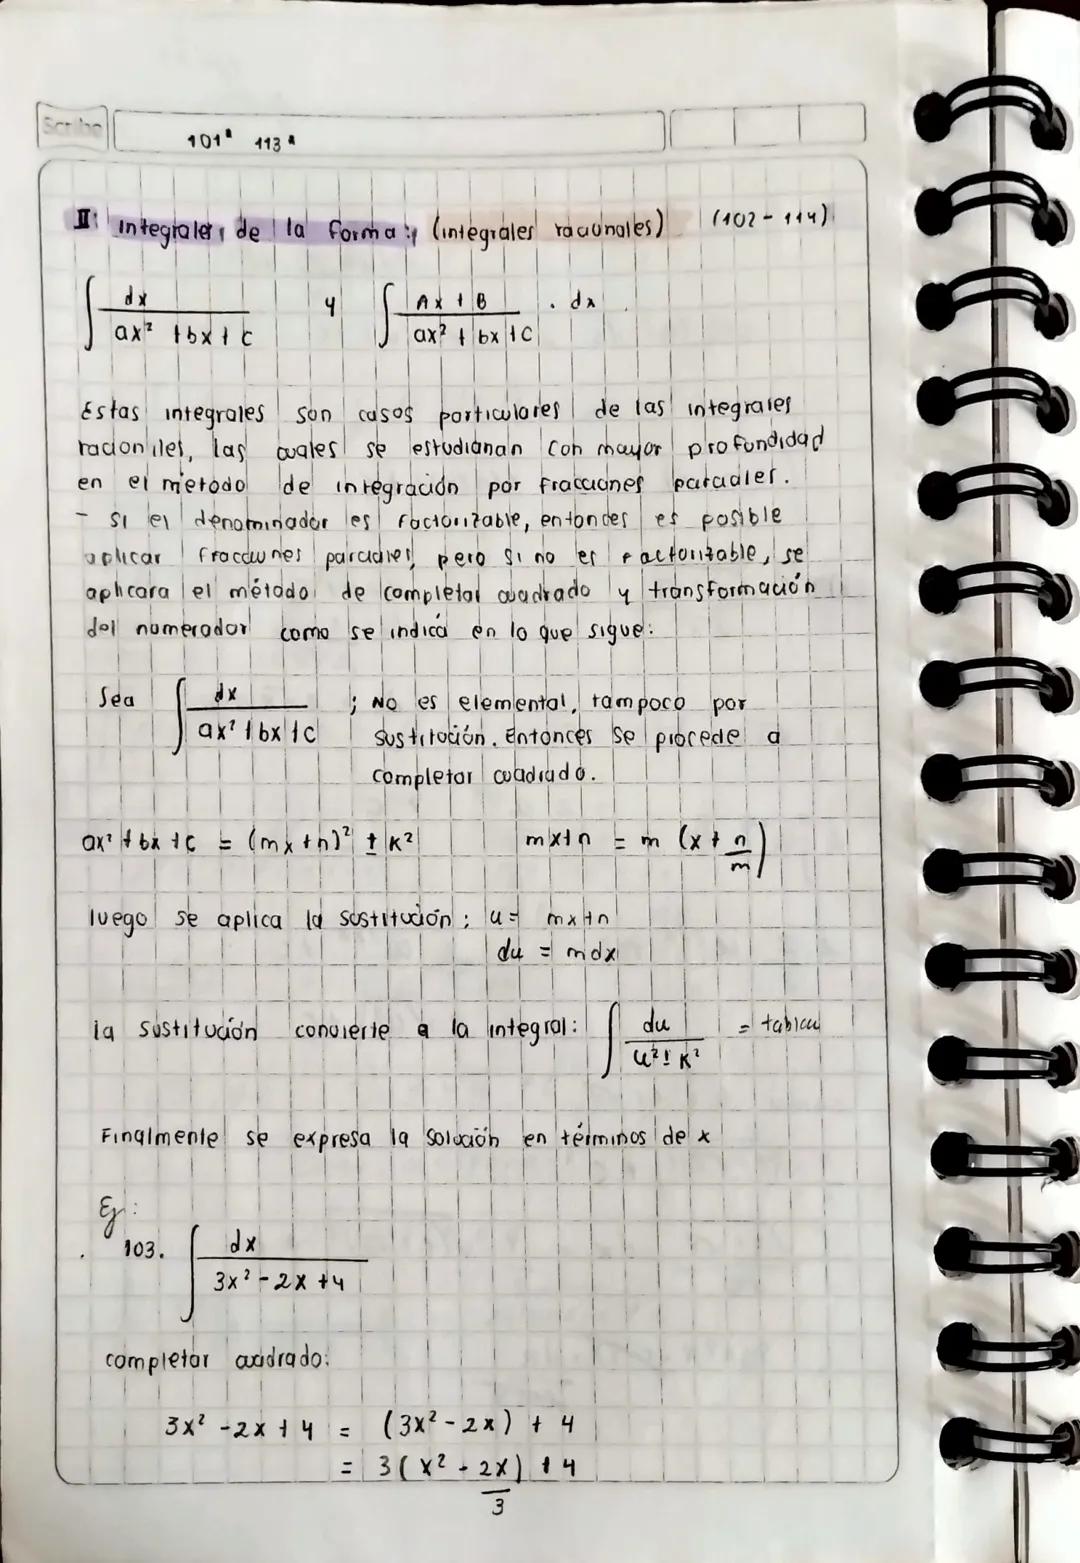 Scribe
101ª 113ª
II: integrales de la forma: (integrales racionales) (102 - 114)
∫ dx / (ax² + bx + c) y ∫ (Ax + B) / (ax² + bx + c) . dx
Estas integrales son casos particulares de las integrales
racionales, las cuales se estudiarian con mayor profundidad
en el metodo de integración por fracciones parciales.
- si el denominador es factorizable, entonces es posible
aplicar fracciones parciales, pero si no es factorizable, se
aplicara el método de completar cuadrado y transformación
del numerador como se indica en lo que sigue:
Sea ∫ dx / (ax² + bx + c) ; No es elemental, tampoco por
sustitución. Entonces se procede a
completar cuadrado.
ax² + bx + c = (mx + n)² ± k² mx + n = m (x + n/m)
luego se aplica la sustitución: u = mx + n
du = mdx
la sustitución convierte a la integral: ∫ du / (u² ± k²) = tablas
Finalmente se expresa la solución en términos de x
Ej:
103. ∫ dx / (3x² - 2x + 4)
completar cuadrado:
3x² - 2x + 4 = (3x² - 2x) + 4
= 3(x² - 2x/3) + 4